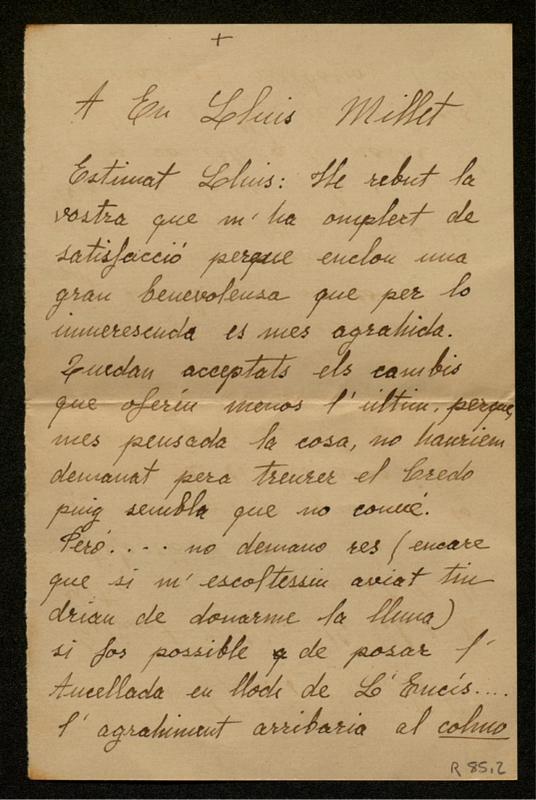 +
A En Lluis Millet
Estimat Lluis: He rebut la
vostra que m'ha omplert de
satisfacció perque enclou una
gran benevolensa que per lo
inmerescuda es mes agrahida.
Quedan acceptats els cambis
que oferíu menos l'últim, perque,
mes pensada la cosa, no hauriem
demanat pera treurer el Credo
puig sembla que no convé.
Peró.... no demano res (encare
que si m'escoltessin aviat tin
drian de donarme la lluna)
si fos possible de posar l'
Aucellada en lloch de L'Encís....
l'agrahiment arribaria al colmo
R 85,2